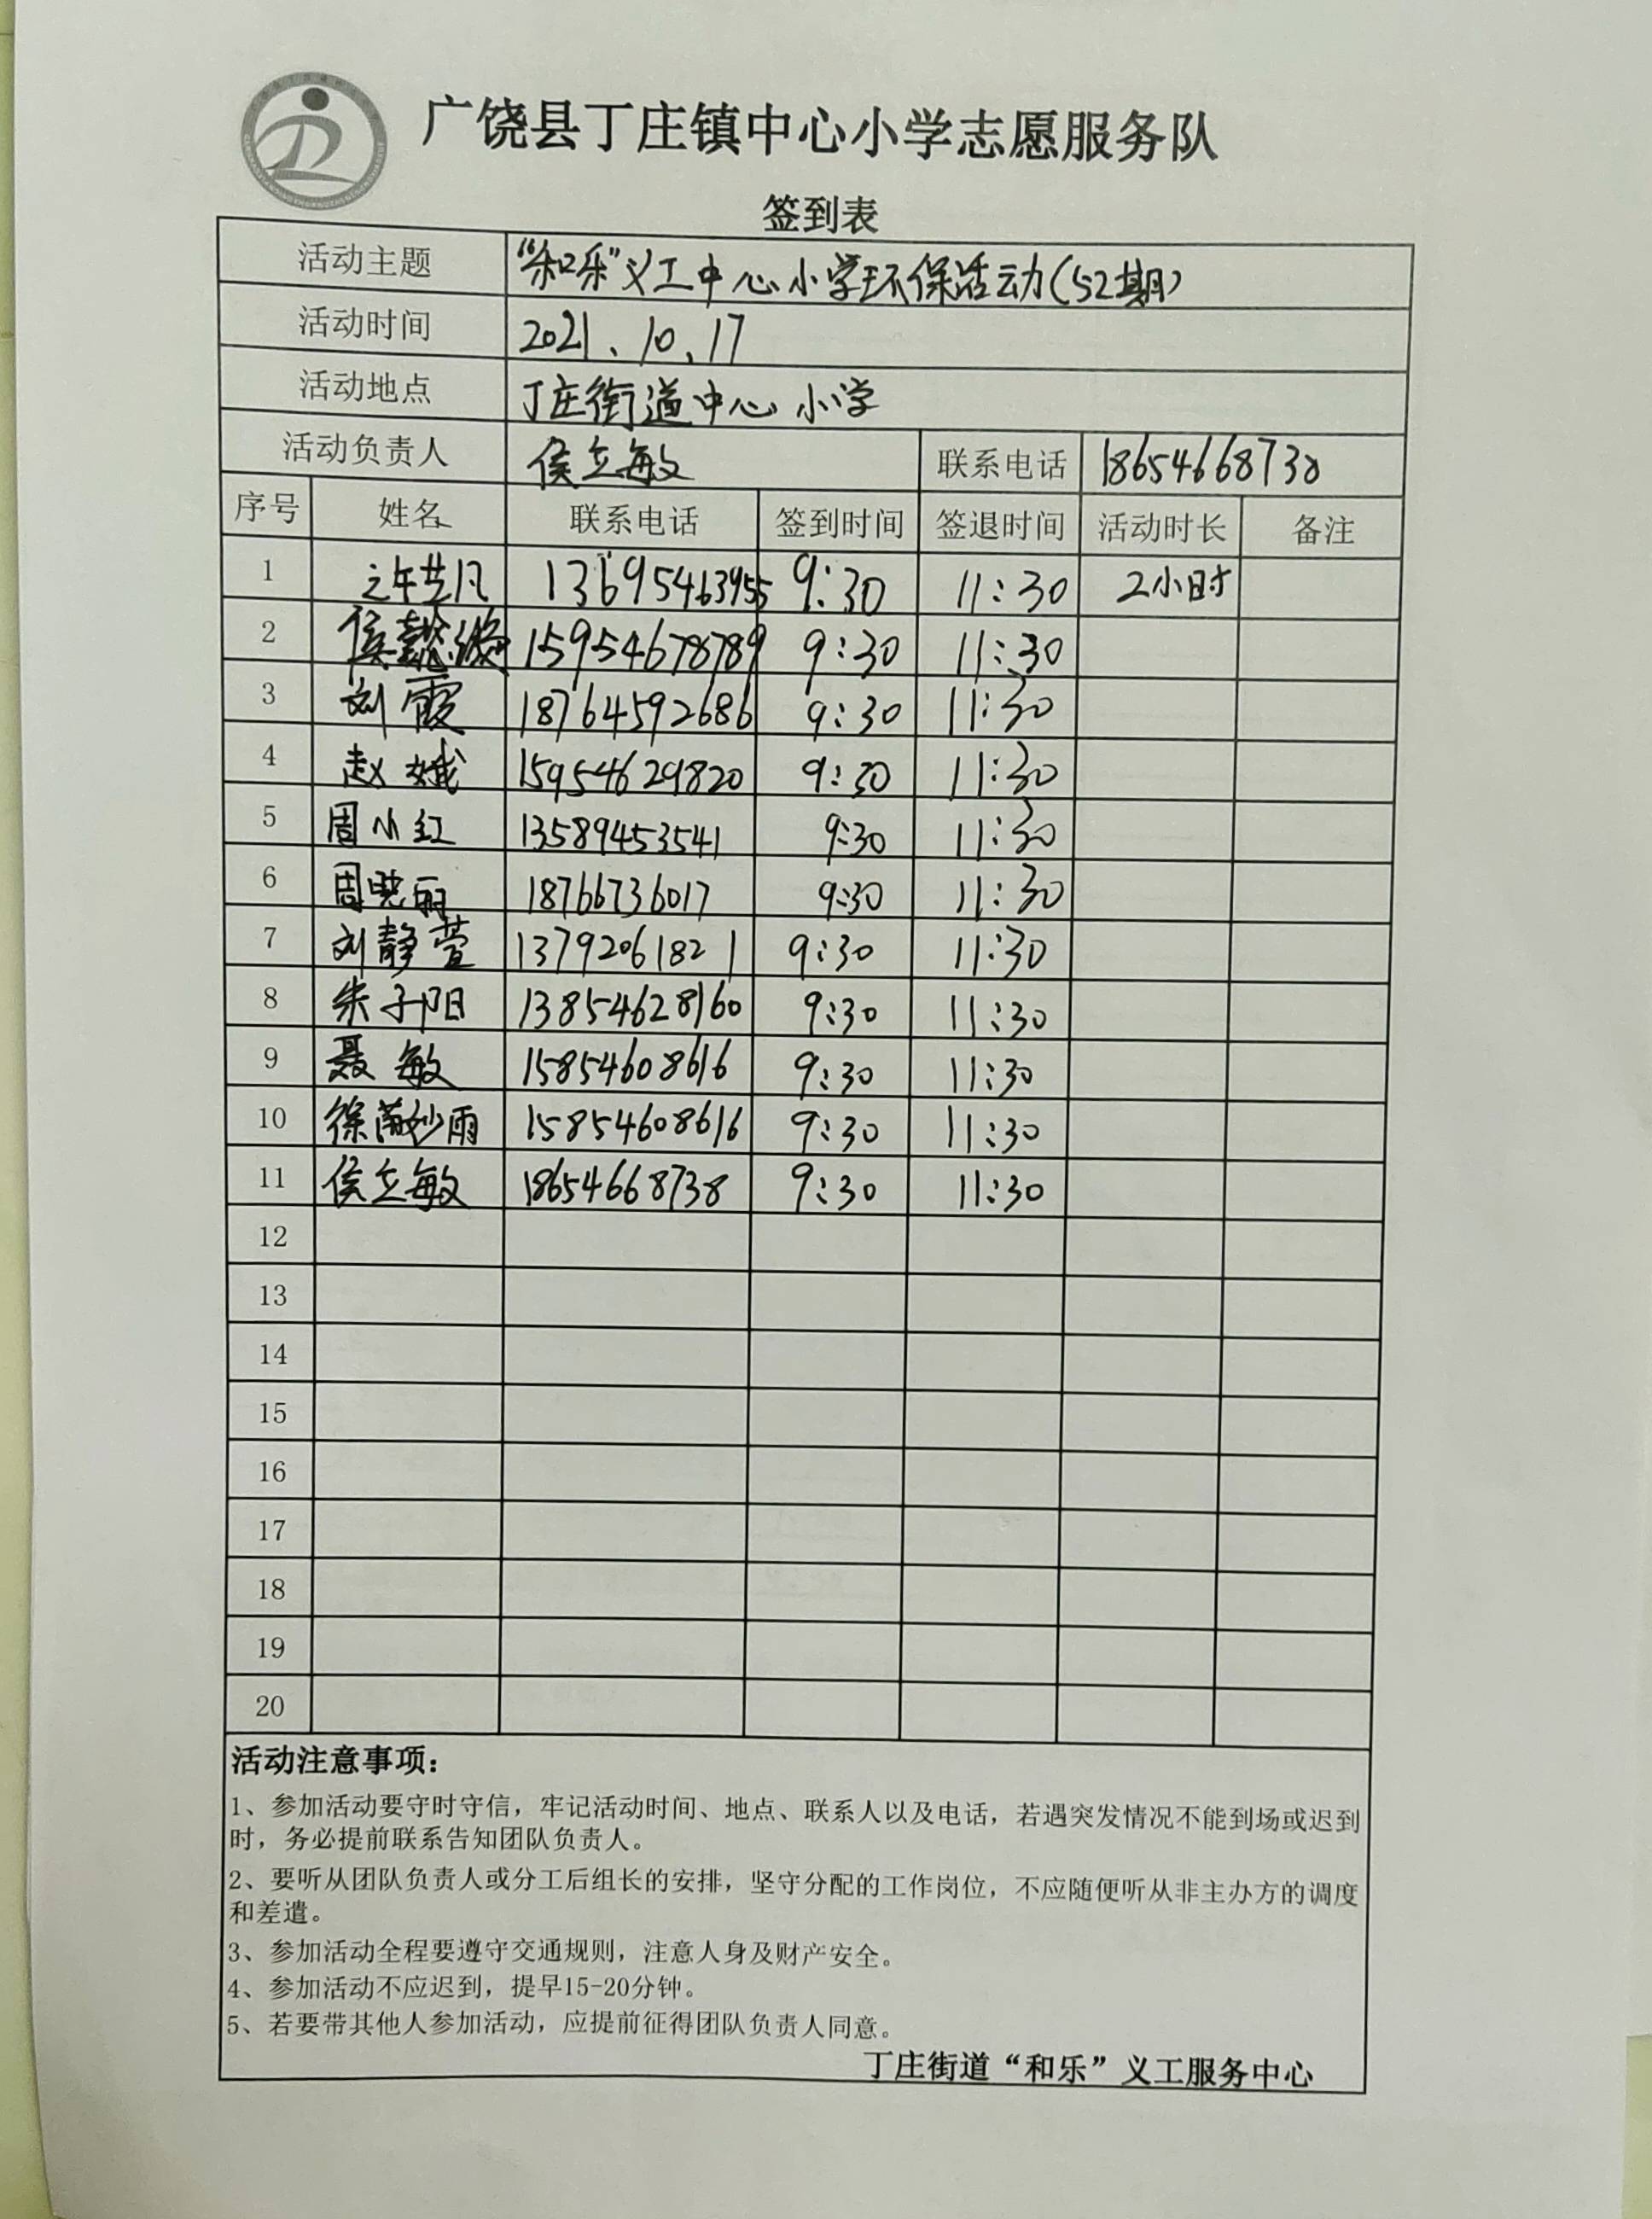 广饶县丁庄镇中心小学志愿服务队
签到表
活动主题 “和乐”义工中心小学环保活动(52期)
活动时间 2021.10.17
活动地点 丁庄街道中心小学
活动负责人 侯立敏 联系电话 18654668738
序号 姓名 联系电话 签到时间 签退时间 活动时长 备注
1 13695463955 9:30 11:30 2小时
2 侯懿 15954678789 9:30 11:30
3 刘霞 18764592686 9:30 11:30
4 赵娥 15954629820 9:30 11:30
5 周小红 13589453541 9:30 11:30
6 周晓丽 18766736017 9:30 11:30
7 刘静萱 13792061821 9:30 11:30
8 朱子阳 13854628160 9:30 11:30
9 聂敏 15854608616 9:30 11:30
10 徐 雨 15854608616 9:30 11:30
11 侯立敏 18654668738 9:30 11:30
12
13
14
15
16
17
18
19
20
活动注意事项：
1、参加活动要守时守信，牢记活动时间、地点、联系人以及电话，若遇突发情况不能到场或迟到
时，务必提前联系告知团队负责人。
2、要听从团队负责人或分工后组长的安排，坚守分配的工作岗位，不应随便听从非主办方的调度
和差遣。
3、参加活动全程要遵守交通规则，注意人身及财产安全。
4、参加活动不应迟到，提早15-20分钟。
5、若要带其他人参加活动，应提前征得团队负责人同意。
丁庄街道“和乐”义工服务中心